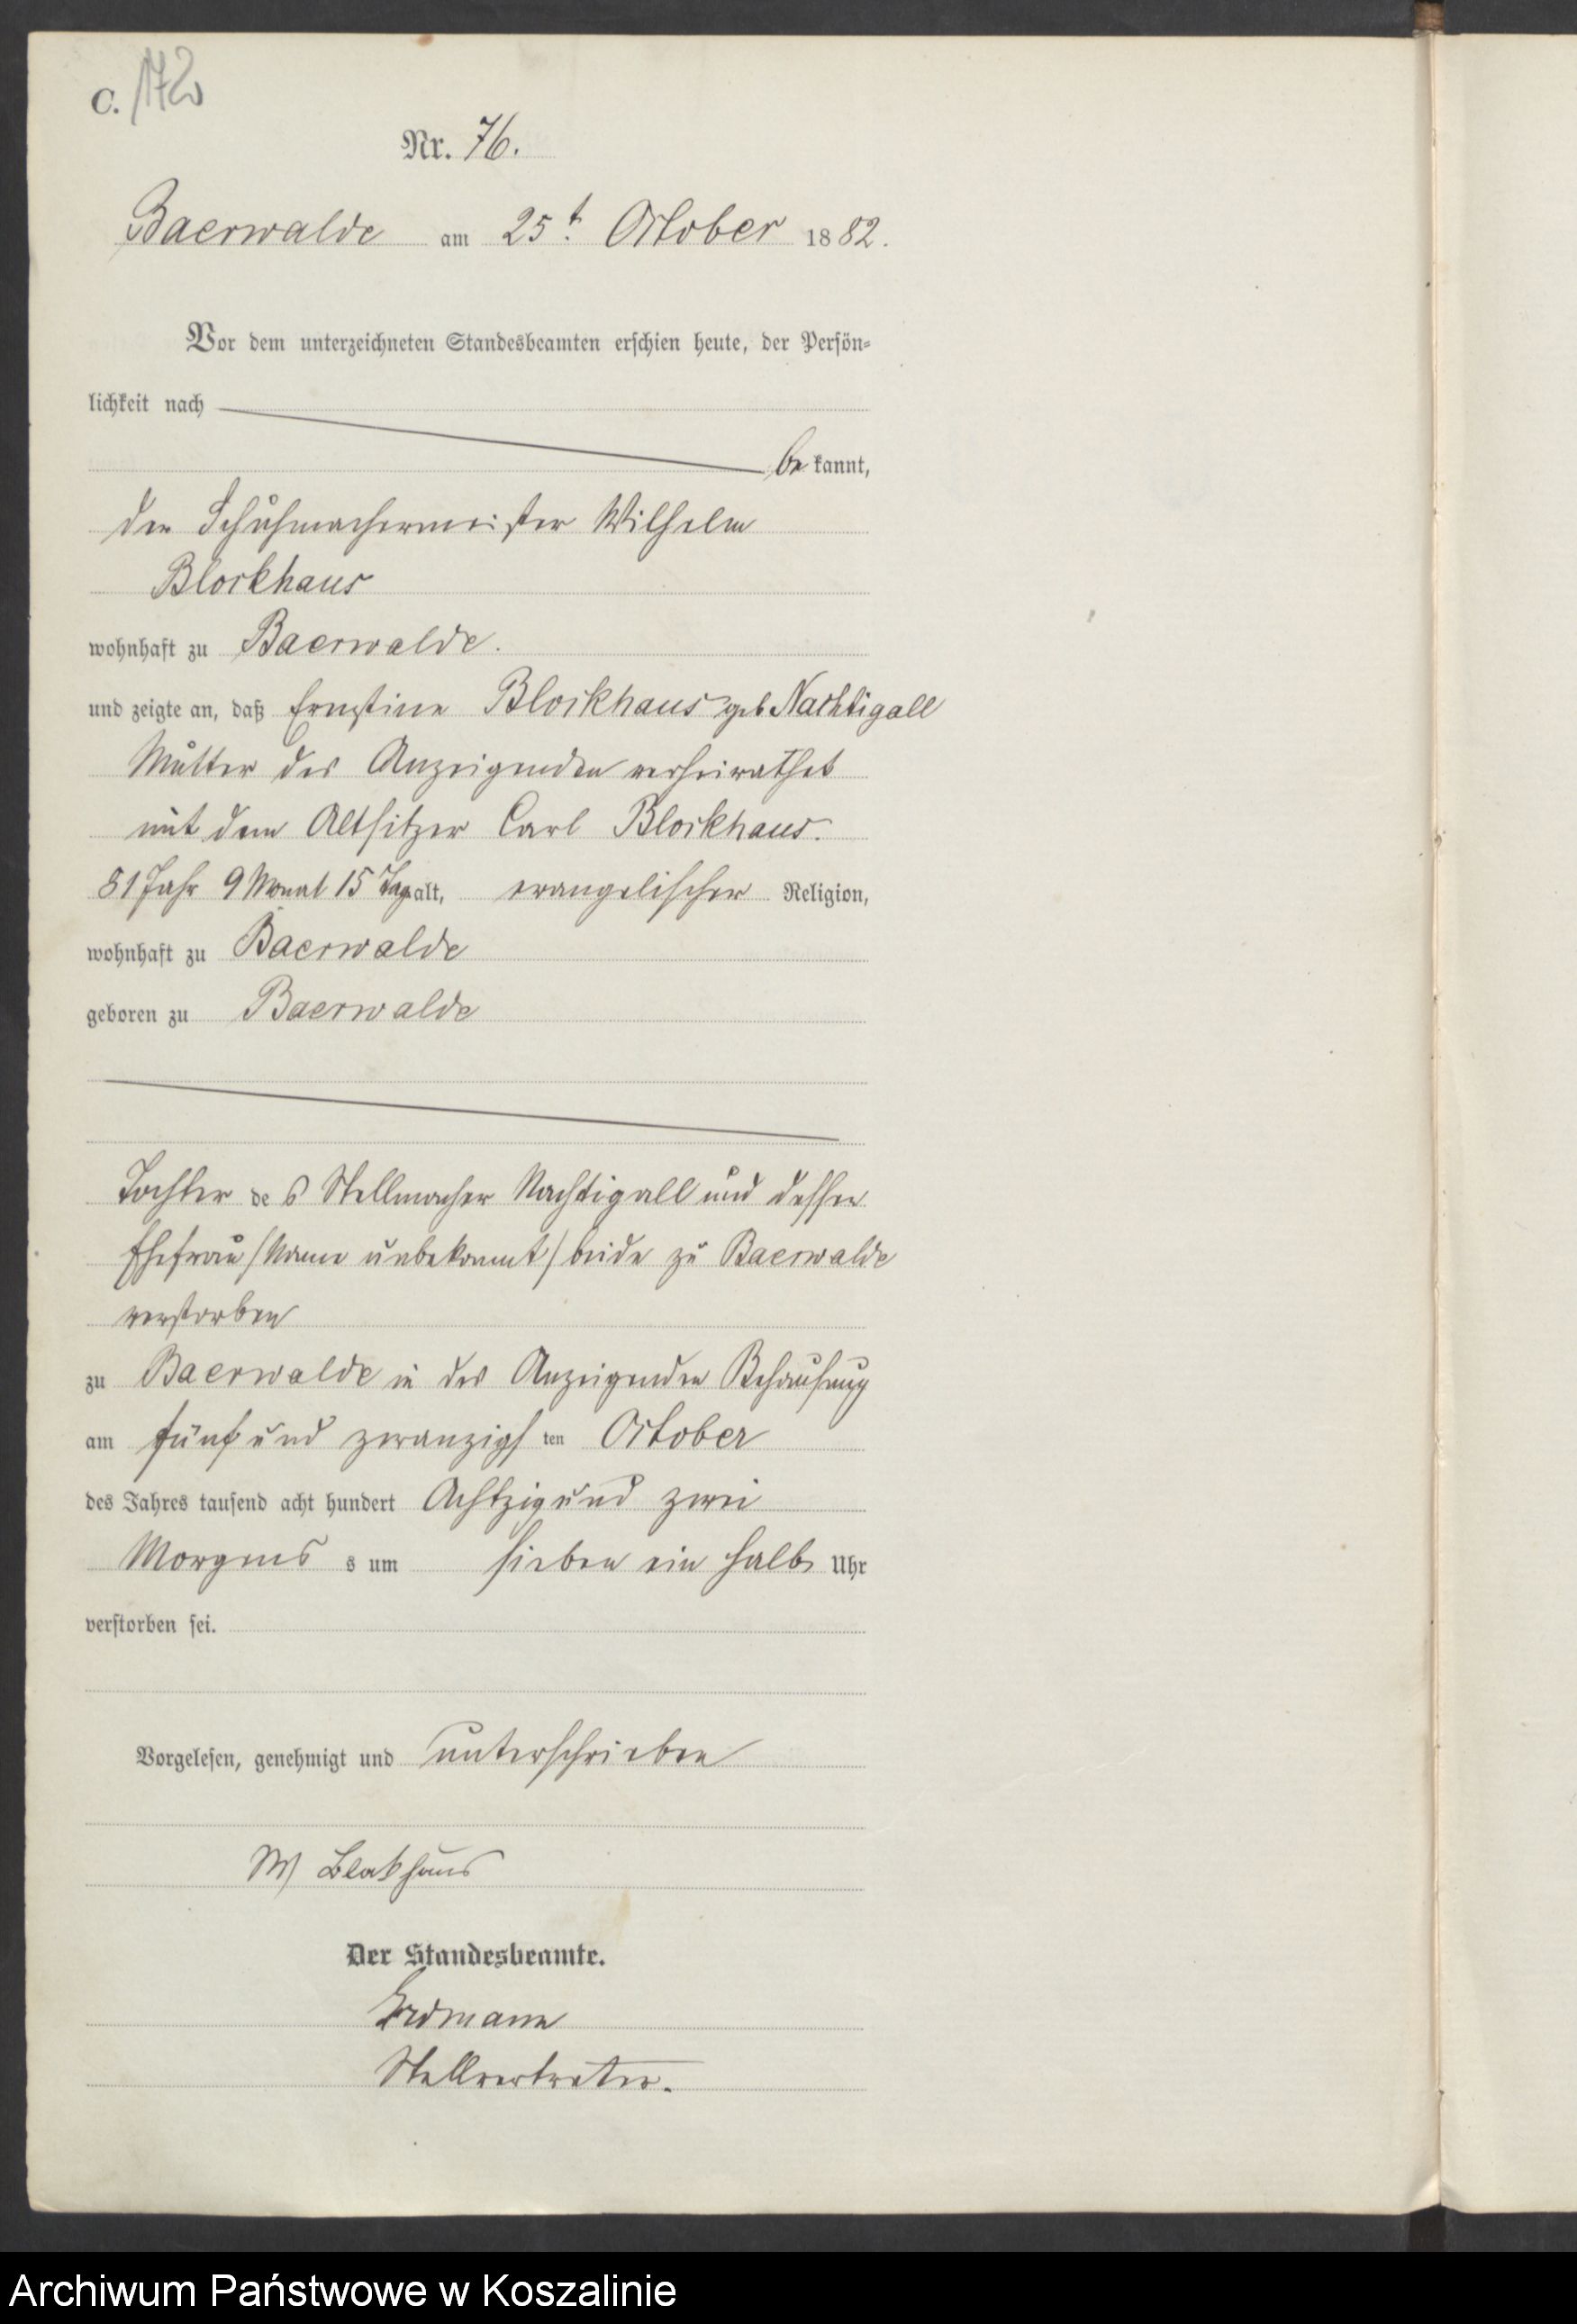 C. 172
Nr. 76.
Baerwalde am 25t. October 1882.
Vor dem unterzeichneten Standesbeamten erschien heute, der Persön-
lichkeit nach
bekannt,
der Schuhmachermeister Wilhelm
Blockhaus
wohnhaft zu Baerwalde.
und zeigte an, daß Ernstine Blockhaus geb Nachtigall
Mutter des Anzeigenden verheirathet
mit dem Altsitzer Carl Blockhaus.
81 Jahr 9 Monat 15 Tag alt, evangelischer Religion,
wohnhaft zu Baerwalde
geboren zu Baerwalde
Tochter des Stellmacher Nachtigall und dessen
Ehefrau /Name unbekannt/ beide zu Baerwalde
verstorben
zu Baerwalde in des Anzeigenden Behausung
am fünf und zwanzigsten October
des Jahres tausend acht hundert Achtzig und zwei
Morgens s um sieben ein halb Uhr
verstorben sei.
Vorgelesen, genehmigt und unterschrieben
W Blokhaus
Der Standesbeamte.
Erdmann
Stellvertreter.
Archiwum Państwowe w Koszalinie